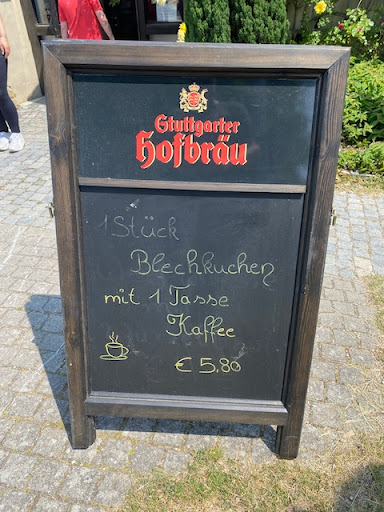 Stuttgarter
Hofbräu
1 Stück
Blechkuchen
mit 1 Tasse
Kaffee
€ 5.80